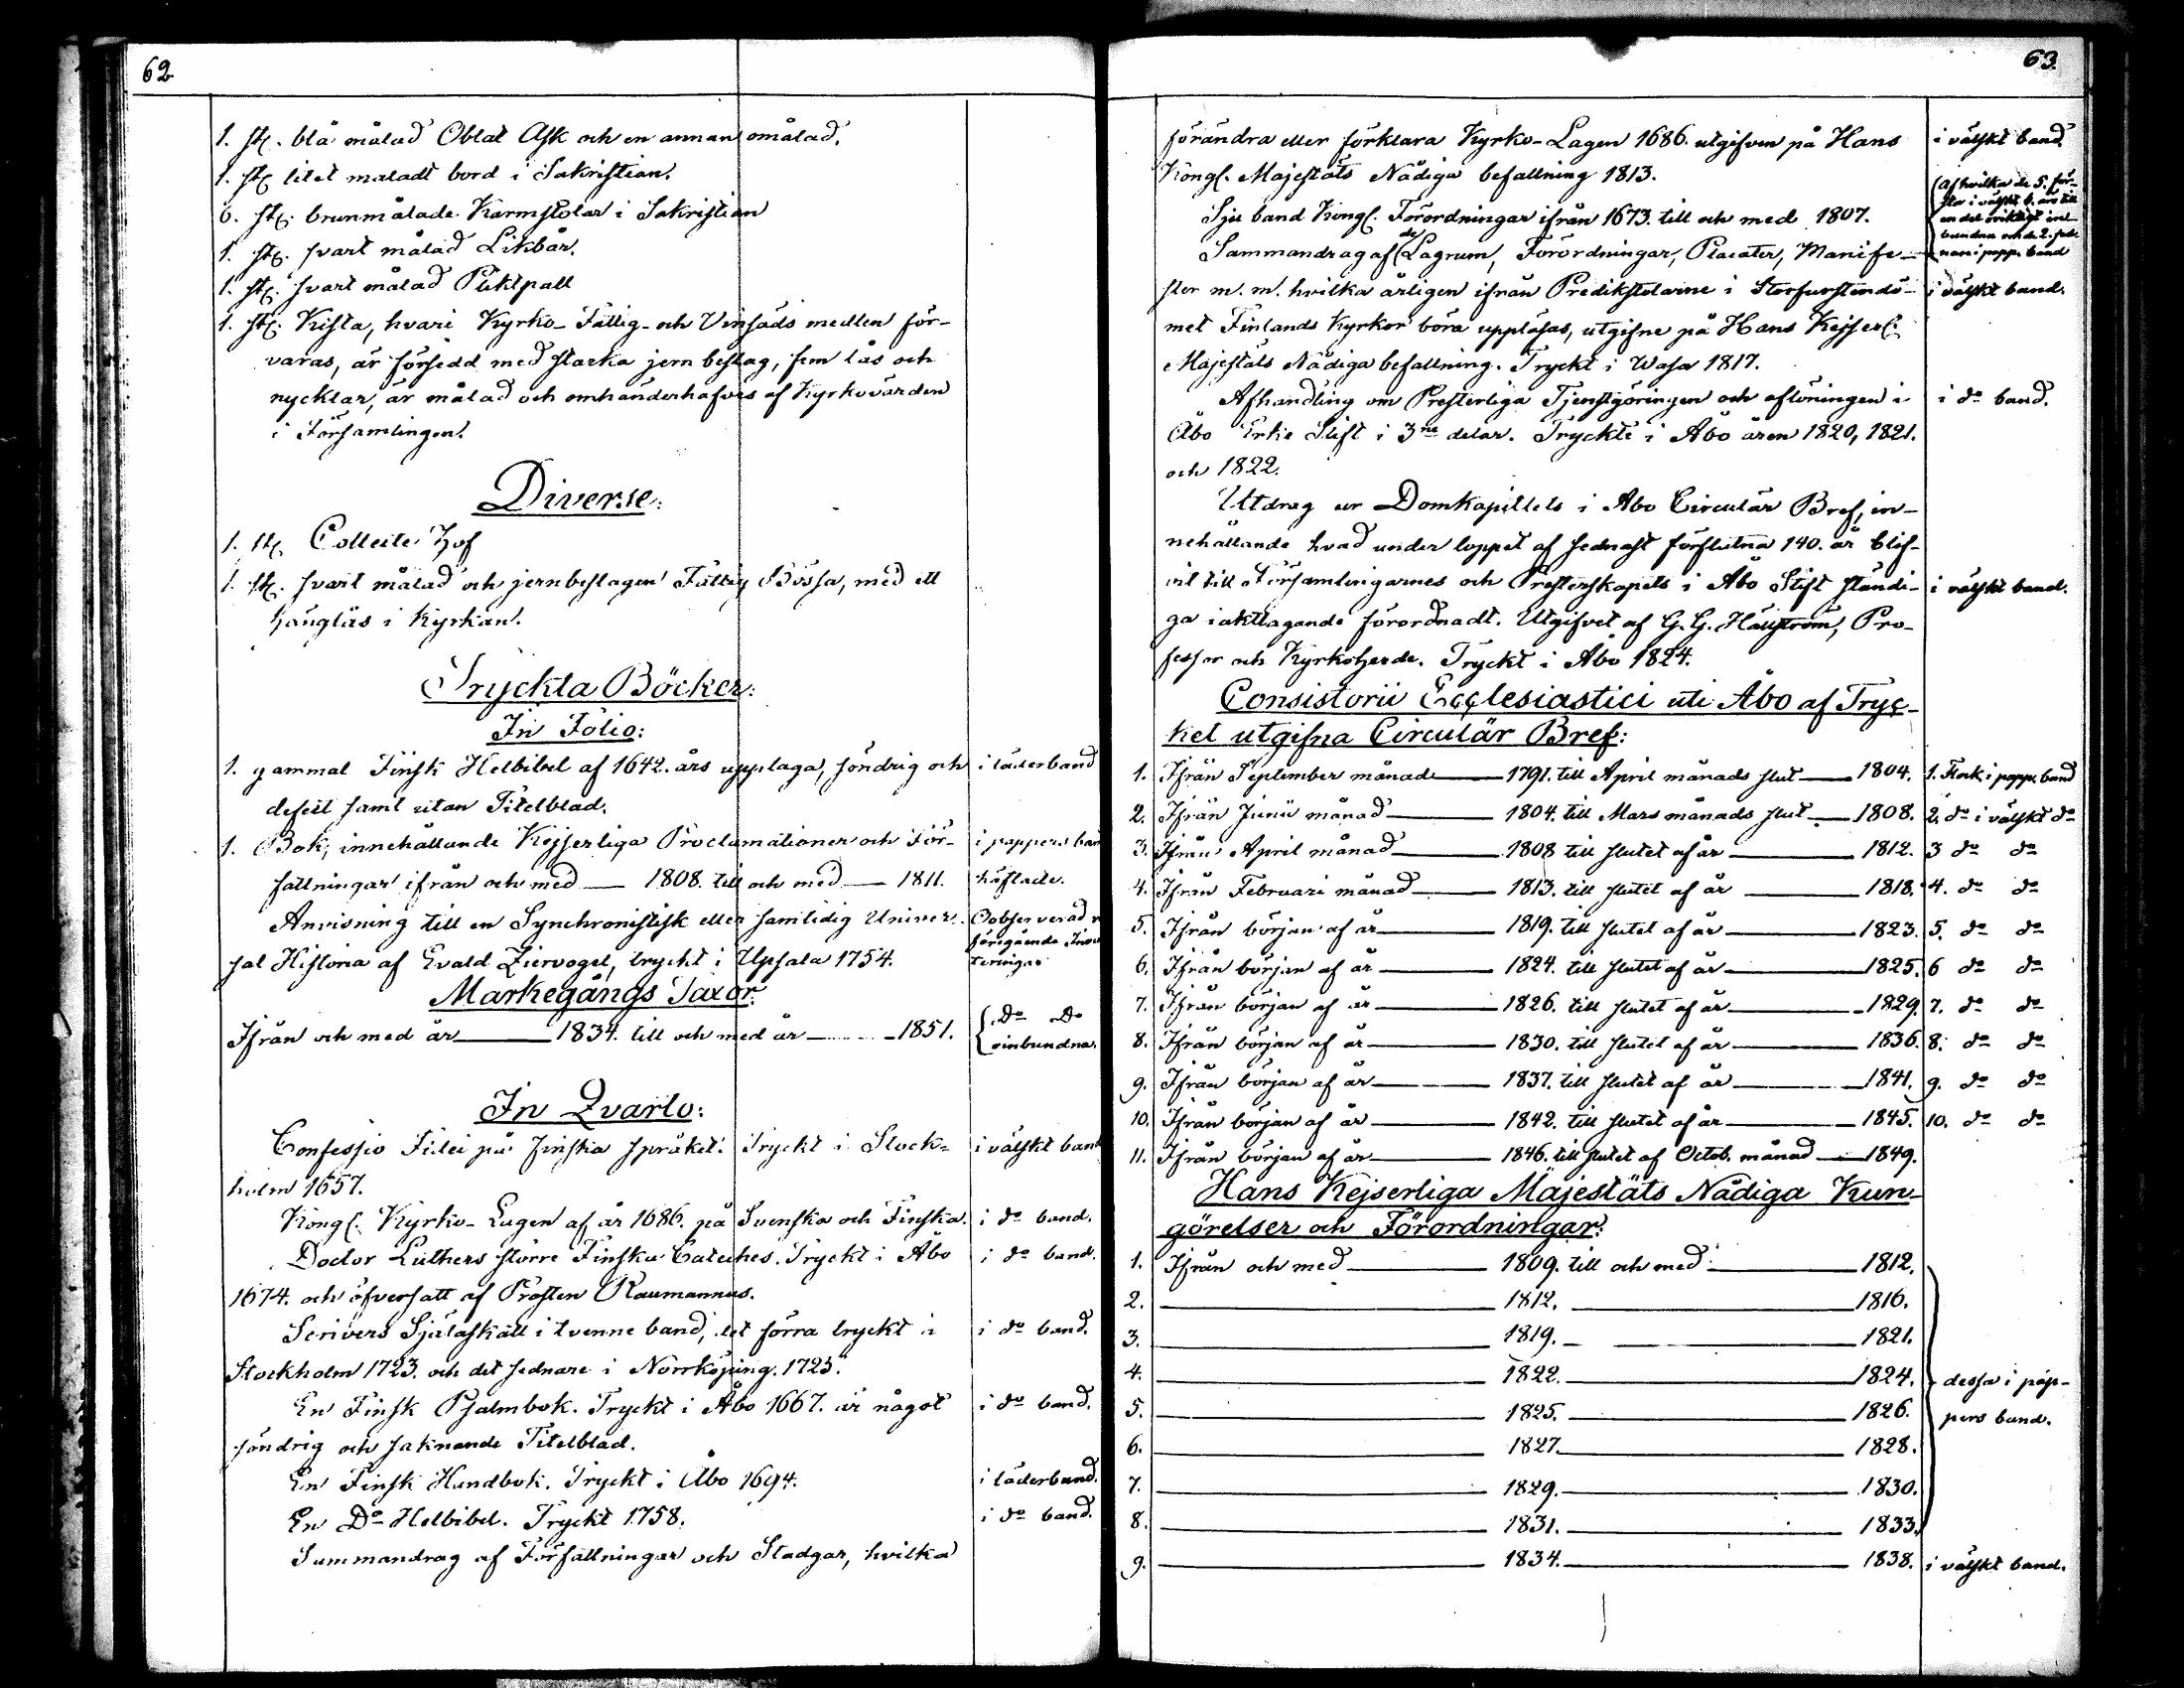 62.
1. st. blå målad Oblat Ask och en annan omålad.
1. st. litet maladt bord i Sakristian.
6. st. brunmålade Karmstolar i Sakristian
1. st. svart målad Likbår.
1. st. svart målad Puktpall
1. st. Kista, hvari Kyrko- Fattig- och Vinsäds medlen för-
varas, är försedd med starka jern beslag, fem lås och
nycklar, är målad och omhänderhafves af Kyrkovärden
i Församlingen.
Diverse:
1. st. Collecte Hof
1. st. svart målad och jernbeslagen Fattig Bössa, med ett
hänglås i Kyrkan.
Tryckta Böcker:
In Folio:
1. gammal Finsk Helbibel af 1642. års upplaga, söndrig och i läderband
defect samt utan Titelblad.
1. Bok, innehållande Kejserliga Proclamationer och För- i pappers ban
fattningar ifrån och med — 1808. till och med — 1811. häftade.
Anvisning till en Synchronistisk eller samtidig Univer- Oobserverad
sal Historia af Evald Ziervogel, tryckt i Upsala 1754. föregående Inven
teringar
Markegångs Taxor:
Ifrån och med år — 1834. till och med år — 1851. Do Do
oinbundna.
In Qvarto:
Confessio Fidei på finska språket. Tryckt i Stock- i välskt band
holm 1657.
Kongl. Kyrko-Lagen af år 1686. på Svenska och Finska. i do band.
Doctor Luthers större Finska Cateches. Tryckt i Åbo i do band.
1674. och öfversatt af Prosten Raumannus.
Scrivers Själaskatt i tvenne band, det förra tryckt i i do band.
Stockholm 1723. och det sednare i Norrköping. 1725.
En Finsk Psalmbok. Tryckt i Åbo 1667. är något i do band.
söndrig och saknande Titelblad.
En Finsk Handbok. Tryckt i Åbo 1694. i läderband.
En Do Helbibel. Tryckt 1758. i do band.
Sammandrag af Författningar och Stadgar, hvilka
63.
förändra eller förklara Kyrko-Lagen 1686. utgifven på Hans i välskt band.
Kongl. Majestäts Nådiga befallning 1813.
Sju band Kongl. Förordningar ifrån 1673. till och med 1807. af hvilka de 5. för-
sta i välskt b. äro till
en del oriktigt in-
bundna och de 2. sed-
nare i papp. band
Sammandrag af de Lagrum, Förordningar, Placater, Manife-
ster m. m. hvilka årligen ifrån Predikstolarne i Storfurstendö- i välskt band.
met Finlands Kyrkor böra uppläsas, utgifne på Hans Kejserl.
Majestäts Nådiga befallning. Tryckt i Wasa 1817.
Afhandling om Presterliga Tjenstgöringen och aflöningen i i do band.
Åbo Erke Stift i 3ne delar. Tryckte i Åbo åren 1820, 1821.
och 1822.
Utdrag ur Domkapitlets i Åbo Circulär Bref, in-
nehållande hvad under loppet af sednast förflutna 140. år blif-
vit till Församlingarnes och Presterskapets i Åbo Stift ständi- i välskt band.
ga iakttagande förordnadt. Utgifvet af G. G. Hällström, Pro-
fessor och Kyrkoherde. Tryckt i Åbo 1824.
Consistorii Ecclesiastici uti Åbo af Tryc-
ket utgifna Circulär Bref:
1. Ifrån September månad — 1791. till April månads slut — 1804. 1. Stock i papp. band
2. Ifrån Junii månad — 1804. till Mars månads slut — 1808. 2. do i välskt do
3. Ifrån April månad — 1808 till slutet af år — 1812. 3 do do
4. Ifrån Februari månad — 1813. till slutet af år — 1818. 4. do do
5. Ifrån början af år — 1819. till slutet af år — 1823. 5. do do
6. Ifrån början af år — 1824. till slutet af år — 1825. 6 do do
7. Ifrån början af år — 1826. till slutet af år — 1829. 7. do do
8. Ifrån början af år — 1830. till slutet af år — 1836. 8. do do
9. Ifrån början af år — 1837. till slutet af år — 1841. 9. do do
10. Ifrån början af år — 1842. till slutet af år — 1845. 10. do do
11. Ifrån början af år — 1846. till slutet af Octob. månad — 1849.
Hans Kejserliga Majestäts Nådiga Kun-
görelser och Förordningar:
1. Ifrån och med — 1809. till och med — 1812.
2. — 1812. — 1816.
3. — 1819. — 1821.
4. — 1822. — 1824. dessa i pap-
5. — 1825. — 1826. pers band.
6. — 1827. — 1828.
7. — 1829. — 1830.
8. — 1831. — 1833.
9. — 1834. — 1838. i välskt band.